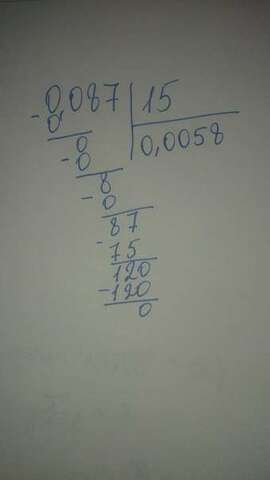 0,087 | 15
- 0, | 0,0058
0
- 0
8
- 0
87
- 75
120
- 120
0